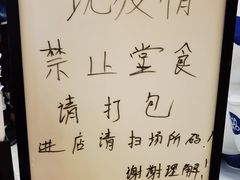 现疫情
禁止堂食
请打包
进店请扫场所码！
谢谢理解！